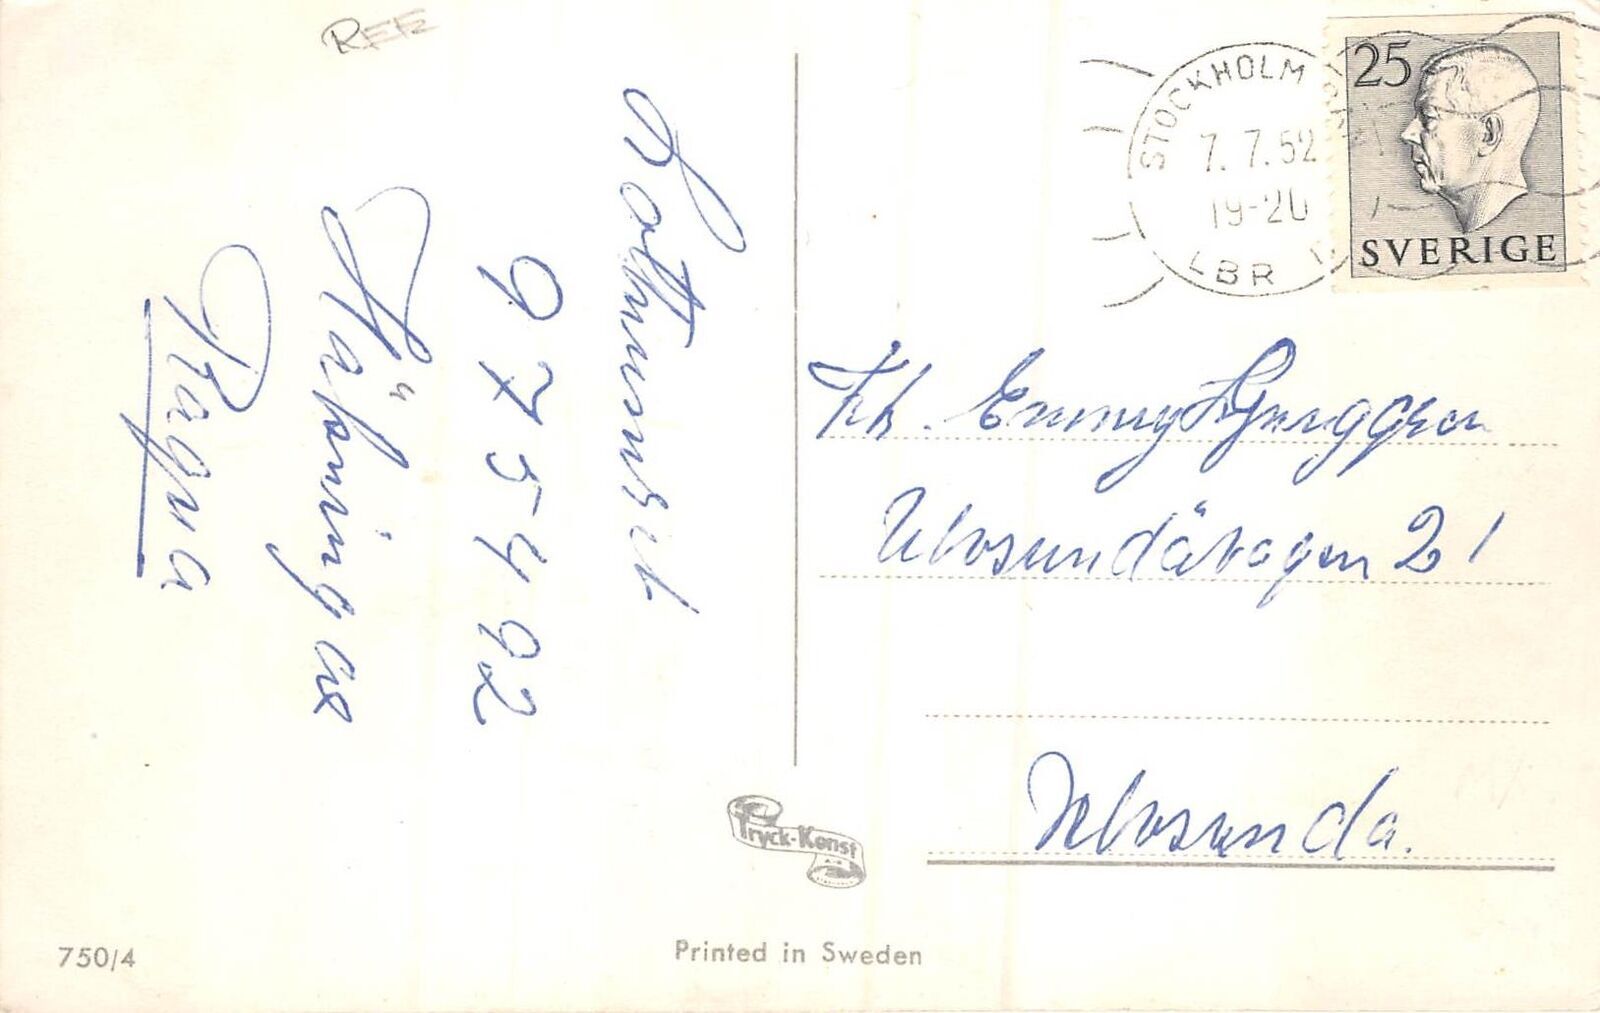 REFE
Lottnumret
9 7 5 4 9 2
Hälsningar
Ragna
STOCKHOLM BAN
7.7.52
19-20
LBR
25
SVERIGE
Frk. Emmy Ljunggren
Ulvsundavägen 21
Ulvsunda.
Tryck-Konst
750/4
Printed in Sweden